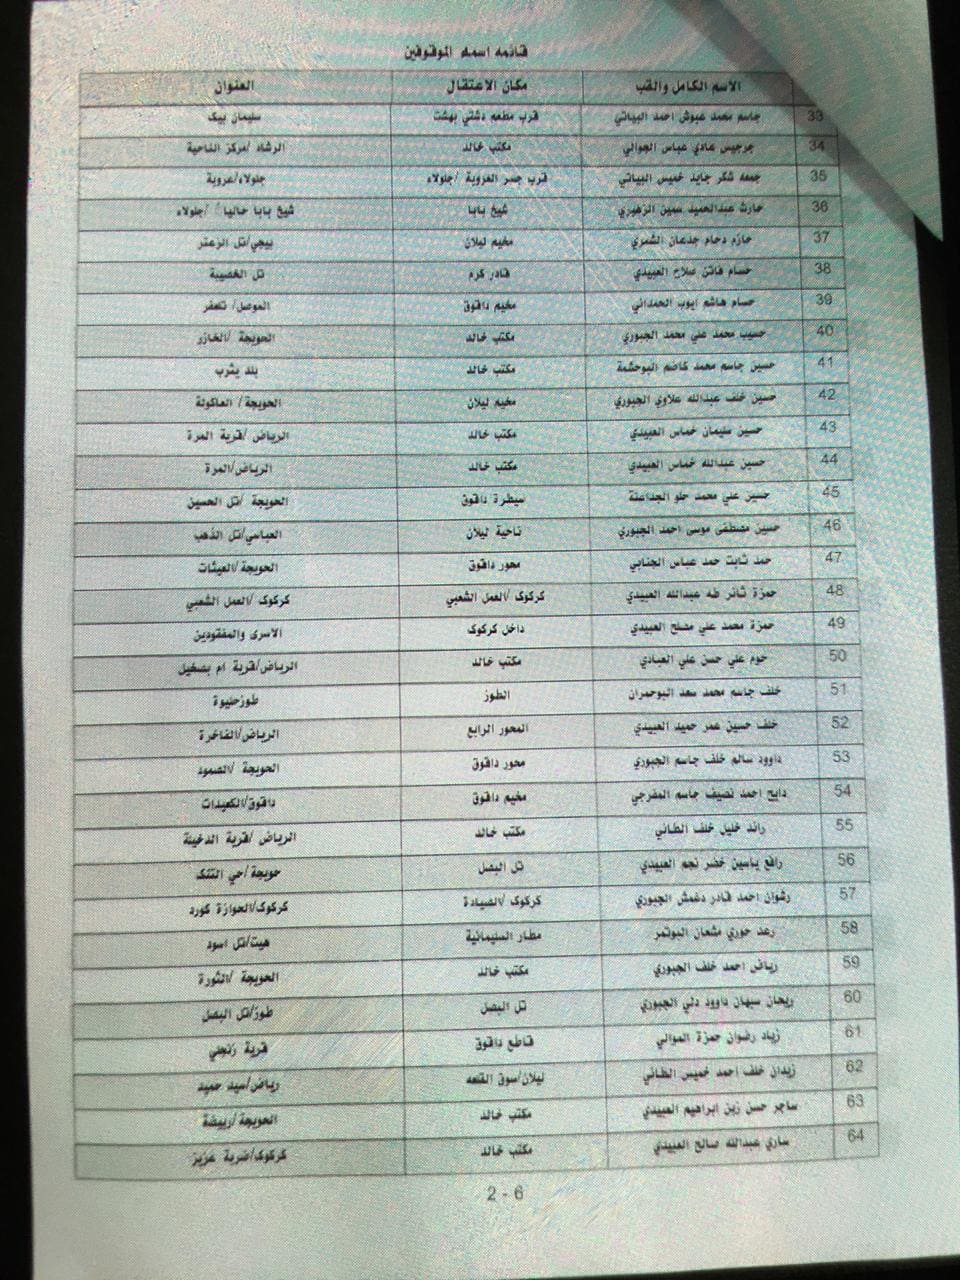 قائمه اسماء الموقوفين
الاسم الكامل والقب مكان الاعتقال العنوان
33 جاسم محمد عبوش احمد البياتي قرب مطعم دشتي بهشت سليمان بيك
34 جرجيس عادي عباس الجوالي مكتب خالد الرشاد /مركز الناحية
35 جمعه شكر جايد خميس البياتي قرب جسر العروبة /جلولاء جلولاء/عروبة
36 حارث عبدالحميد سمين الزهيري شيخ بابا شيخ بابا حاليا /جلولاء
37 حازم دحام جدعان الشمري مخيم ليلان بيجي/تل الزعتر
38 حسام فاتن صلاح العبيدي قادر كرم تل الخصيبة
39 حسام هاشم ايوب الحمداني مخيم داقوق الموصل/ تلعفر
40 حسيب محمد علي محمد الجبوري مكتب خالد الحويجة /الخازر
41 حسين جاسم محمد كاضم البوحشمة مكتب خالد بلد يثرب
42 حسين خلف عبدالله علاوي الجبوري مخيم ليلان الحويجة/ الماكولة
43 حسين سليمان خماس العبيدي مكتب خالد الرياض /قرية المرة
44 حسين عبدالله خماس العبيدي مكتب خالد الرياض/المرة
45 حسين علي محمد حلو الجداعنة سيطرة داقوق الحويجة /تل الحسين
46 حسين مصطفى موسى احمد الجبوري ناحية ليلان العباسي/تل الذهب
47 حمد ثابت حمد عباس الجنابي محور داقوق الحويجة/العيثات
48 حمزة ثائر طه عبدالله العبيدي كركوك /العمل الشعبي كركوك /العمل الشعبي
49 حمزة محمد علي مصلح العبيدي داخل كركوك الاسرى والمفقودين
50 حوم علي حسن علي العبادي مكتب خالد الرياض/قرية ام بصخيل
51 خلف جاسم محمد سعد البوحمران الطوز طوزحليوة
52 خلف حسين عمر حميد العبيدي المحور الرابع الرياض/الفاخرة
53 داوود سالم خلف جاسم الجبوري محور داقوق الحويجة /الصمود
54 دايح احمد نصيف جاسم المفرجي مخيم داقوق داقوق/الكعيدات
55 رائد خليل خلف الطائي مكتب خالد الرياض /قرية الدخينة
56 رافع ياسين خضر نجم العبيدي تل البصل حويجة/حي التنك
57 رشوان احمد قادر دغمش الجبوري كركوك /الصيادة كركوك/الحوازة كورد
58 رعد حوري مشعان البونمر مطار السليمانية هيت/تل اسود
59 رياض احمد خلف الجبوري مكتب خالد الحويجة /الثورة
60 ريحان سبهان داوود دلي الجبوري تل البصل طوز/تل البصل
61 زياد رضوان حمزة الموالي قاطع داقوق قرية زنجلي
62 زيدان خلف احمد خميس الطائي ليلان/سوق القلعه رياض/سيد حميد
63 ساجر حسن زبن ابراهيم العبيدي مكتب خالد الحويجة/ربيضة
64 ساري عبدالله صالح العبيدي مكتب خالد كركوك/ضربة عزيز
2 - 6